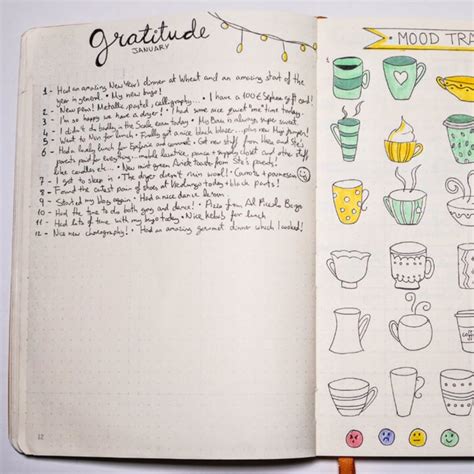 gratitude
JANUARY
1 - Had an amazing New Year's dinner at Wheat and an amazing start of the
year in general. • My new hugo!
2 - New pens! Metallic, pastel, calligraphy... • I have a 100€ Sephora gift card!
3 - I'm so happy we have a dryer! • Had some nice "me" time today.
4 - I didn't do badly in the exam today • is always super sweet.
5 - Went to for lunch • Finally got a nice black blazer... plus new
6 - Had a lovely lunch for and • Got new stuff from and
parents paid for everything... and other stuff
like candles etc... • New from parents!
7 - I got to sleep in • The dryer doesn't ruin wool! • Carrots + parmesan
8 - Found the cutest pair of shoes at today + black pants!
9 - Started my blog again • Had a nice dance lesson
10 - Had the time to do both and dance! • Pizza from Al Borgo
11 - Had lots of time with my today • Nice for lunch
12 - Nice new choreography! • Had an amazing gourmet dinner which I cooked!
12
MOOD TRA
1
COFFEE